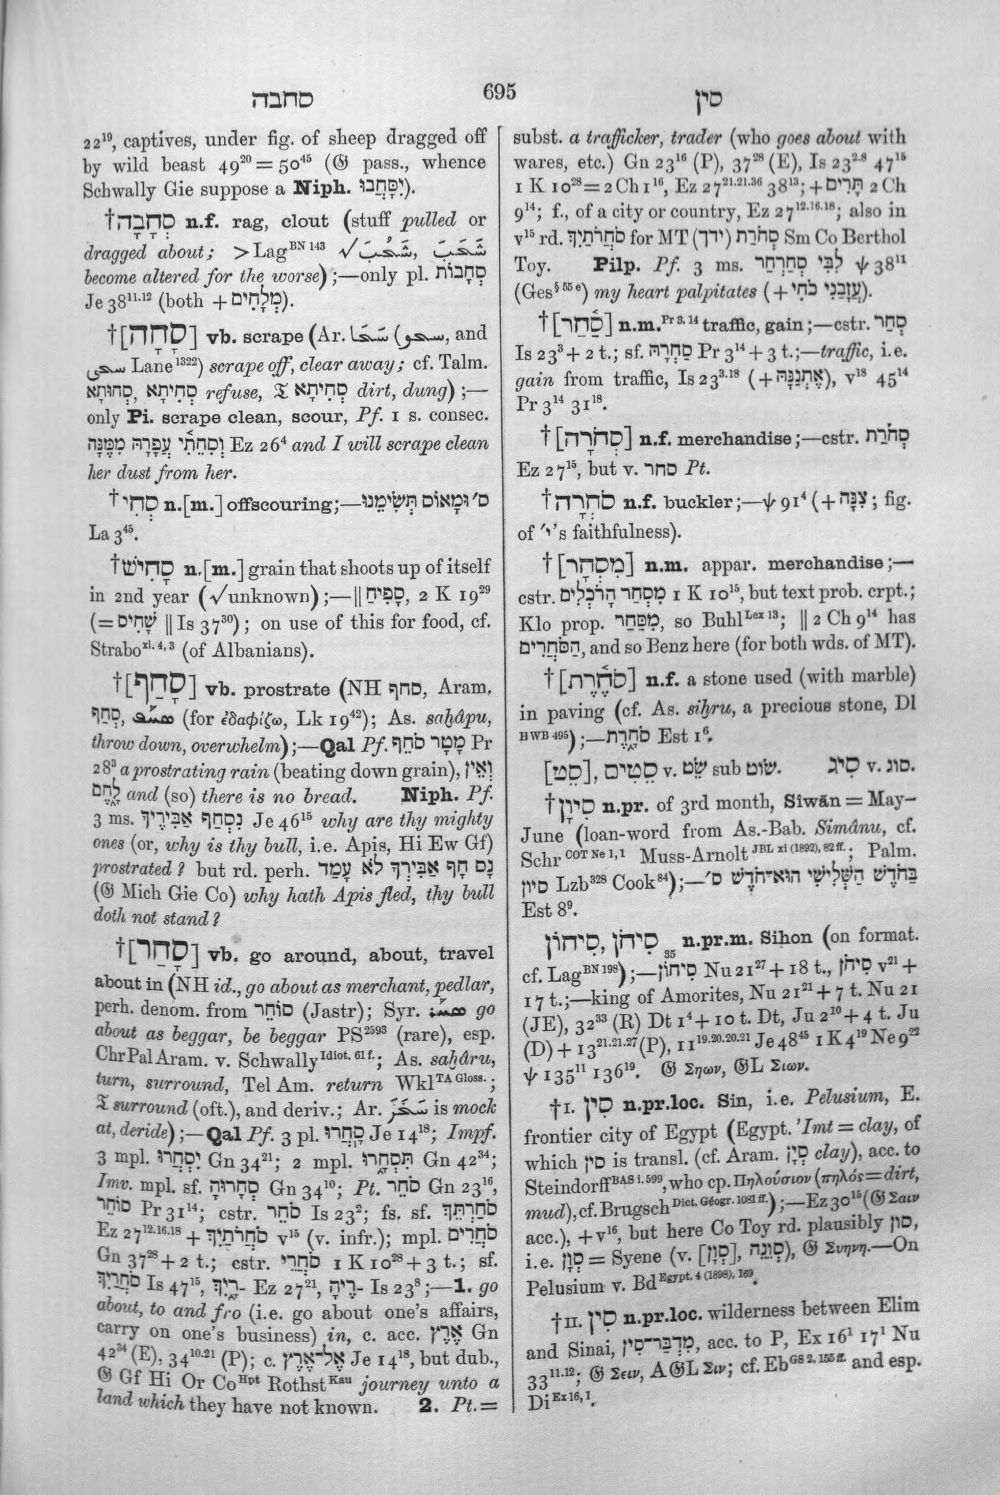 סחבה
695
סין
22¹⁹, captives, under fig. of sheep dragged off
by wild beast 49²⁰ = 50⁴⁵ (𝔊 pass., whence
Schwally Gie suppose a Niph. יִסָּחֲבוּ).
†סְחָבָה n.f. rag, clout (stuff pulled or
dragged about; > Lag^BN 143 √ شَخُبَ, شَخَّبَ
become altered for the worse);—only pl. סְחָבוֹת
Je 38¹¹·¹² (both + מְלָחִים).
†[סָחָה] vb. scrape (Ar. سَحَا (سحو, and
سحى Lane¹³²²) scrape off, clear away; cf. Talm.
סְחִיתָא, סְחוּתָא refuse, 𝔗 סְחִיתָא dirt, dung);—
only Pi. scrape clean, scour, Pf. 1 s. consec.
וְסִחֵיתִ֫י עֲפָרָהּ מִמֶּנָּה Ez 26⁴ and I will scrape clean
her dust from her.
†סְחִי n.[m.] offscouring;—ס׳ וּמָאוֹס תְּשִׂימֵנוּ
La 3⁴⁵.
†סָחִישׁ n.[m.] grain that shoots up of itself
in 2nd year (√unknown);—‖ סָפִיחַ, 2 K 19²⁹
(= שָׁחִיס ‖ Is 37³⁰); on use of this for food, cf.
Strabo^xi. 4, 3 (of Albanians).
†[סָחַף] vb. prostrate (NH סחף, Aram.
סְחַף, ܣܚܦ (for ἐδαφίζω, Lk 19⁴²); As. saḫâpu,
throw down, overwhelm);—Qal Pf. מָטָר סֹחֵף Pr
28³ a prostrating rain (beating down grain), וְאֵין
לָחֶם and (so) there is no bread. Niph. Pf.
3 ms. נִסְחַף אַבִּירֶיךָ Je 46¹⁵ why are thy mighty
ones (or, why is thy bull, i.e. Apis, Hi Ew Gf)
prostrated? but rd. perh. נָס חַף אַבִּירְךָ לֹא עָמַד
(𝔊 Mich Gie Co) why hath Apis fled, thy bull
doth not stand?
†[סָחַר] vb. go around, about, travel
about in (NH id., go about as merchant, pedlar,
perh. denom. from סוֹחֵר (Jastr); Syr. ܣܚܪ go
about as beggar, be beggar PS²⁵⁹³ (rare), esp.
ChrPalAram. v. Schwally^Idiot. 61 f.; As. saḫâru,
turn, surround, Tel Am. return Wkl^TA Gloss.;
𝔗 surround (oft.), and deriv.; Ar. سَخَرَ is mock
at, deride);—Qal Pf. 3 pl. סָחֲרוּ Je 14¹⁸; Impf.
3 mpl. יִסְחֲרוּ Gn 34²¹; 2 mpl. תִּסְחָרוּ Gn 42³⁴;
Imv. mpl. sf. סְחָרוּהָ Gn 34¹⁰; Pt. סֹחֵר Gn 23¹⁶,
סוֹחֵר Pr 31¹⁴; cstr. סֹחֵר Is 23²; fs. sf. סֹחַרְתֵּךְ
Ez 27¹²·¹⁶·¹⁸ + סֹחֲרֹתַיִךְ v¹⁵ (v. infr.); mpl. סֹחֲרִים
Gn 37²⁸ + 2 t.; cstr. סֹחֲרֵי 1 K 10²⁸ + 3 t.; sf.
סֹחֲרַיִךְ Is 47¹⁵, ־רָיִךְ Ez 27²¹, ־רֶיהָ Is 23⁸;—1. go
about, to and fro (i.e. go about one's affairs,
carry on one's business) in, c. acc. אֶרֶץ Gn
42³⁴ (E), 34¹⁰·²¹ (P); c. אֶל־אֶרֶץ Je 14¹⁸, but dub.,
𝔊 Gf Hi Or Co^Hpt Rothst^Kau journey unto a
land which they have not known. 2. Pt. =
subst. a trafficker, trader (who goes about with
wares, etc.) Gn 23¹⁶ (P), 37²⁸ (E), Is 23²·⁸ 47¹⁵
1 K 10²⁸ = 2 Ch 1¹⁶, Ez 27²¹·²¹·³⁶ 38¹³; + תָּרִים 2 Ch
9¹⁴; f., of a city or country, Ez 27¹²·¹⁶·¹⁸; also in
v¹⁵ rd. סֹחֲרֹתַיִךְ for MT סְחֹרַת (יָדֵךְ) Sm Co Berthol
Toy. Pilp. Pf. 3 ms. לִבִּי סְחַרְחַר ψ 38¹¹
(Ges^§ 55 e) my heart palpitates (+ עֲזָבַנִי כֹחִי).
†[סַ֫חַר] n.m.^Pr 3, 14 traffic, gain;—cstr. סְחַר
Is 23³ + 2 t.; sf. סַחְרָהּ Pr 3¹⁴ + 3 t.;—traffic, i.e.
gain from traffic, Is 23³·¹⁸ (+ אֶתְנַנָּהּ), v¹⁸ 45¹⁴
Pr 3¹⁴ 31¹⁸.
†[סְחֹרָה] n.f. merchandise;—cstr. סְחֹרַת
Ez 27¹⁵, but v. סחר Pt.
†סֹחֵרָה n.f. buckler;—ψ 91⁴ (+ צִנָּה; fig.
of י׳'s faithfulness).
†[מִסְחָר] n.m. appar. merchandise;—
cstr. מִסְחַר הָרֹכְלִים 1 K 10¹⁵, but text prob. crpt.;
Klo prop. מִסַּחַר, so Buhl^Lex 13; ‖ 2 Ch 9¹⁴ has
הַסֹּחֲרִים, and so Benz here (for both wds. of MT).
†[סֹחֶ֫רֶת] n.f. a stone used (with marble)
in paving (cf. As. siḫru, a precious stone, Dl
^HWB 495);—סֹחָרֶת Est 1⁶.
[סֵט], סֵטִים v. שֵׂט sub שׂוט. סִיג v. סוג.
†סִיוָן n.pr. of 3rd month, Siwān = May–
June (loan-word from As.-Bab. Simânu, cf.
Schr^COT Ne 1, 1 Muss-Arnolt^JBL xi (1892), 82 ff.; Palm.
סיון Lzb³²⁸ Cook⁸⁴);—בַּחֹדֶשׁ הַשְּׁלִישִׁי הוּא־חֹדֶשׁ ס׳
Est 8⁹.
סִיחֹן, סִיחוֹן ₃₅ n.pr.m. Sihon (on format.
cf. Lag^BN 198);—סִיחוֹן Nu 21²⁷ + 18 t., סִיחֹן v²¹ +
17 t.;—king of Amorites, Nu 21²¹ + 7 t. Nu 21
(JE), 32³³ (R) Dt 1⁴ + 10 t. Dt, Ju 2¹⁰ + 4 t. Ju
(D) + 13²¹·²¹·²⁷ (P), 11¹⁹·²⁰·²⁰·²¹ Je 48⁴⁵ 1 K 4¹⁹ Ne 9²²
ψ 135¹¹ 136¹⁹. 𝔊 Σηων, 𝔊L Σιων.
†I. סִין n.pr.loc. Sin, i.e. Pelusium, E.
frontier city of Egypt (Egypt. 'Imt = clay, of
which סין is transl. (cf. Aram. סְיָן clay), acc. to
Steindorff^BAS i. 599, who cp. Πηλούσιον (πηλός = dirt,
mud), cf. Brugsch^Dict. Géogr. 1081 ff.);—Ez 30¹⁵ (𝔊 Σαιν
acc.), + v¹⁶, but here Co Toy rd. plausibly סון,
i.e. סְוֵן = Syene (v. [סְוֵן], סְוֵנֵה), 𝔊 Συηνη.—On
Pelusium v. Bd^Egypt. 4 (1898), 169.
†II. סִין n.pr.loc. wilderness between Elim
and Sinai, מִדְבַּר־סִין, acc. to P, Ex 16¹ 17¹ Nu
33¹¹·¹²; 𝔊 Σειν, A𝔊L Σιν; cf. Eb^GS 2, 155 ff. and esp.
Di^Ex 16, 1.